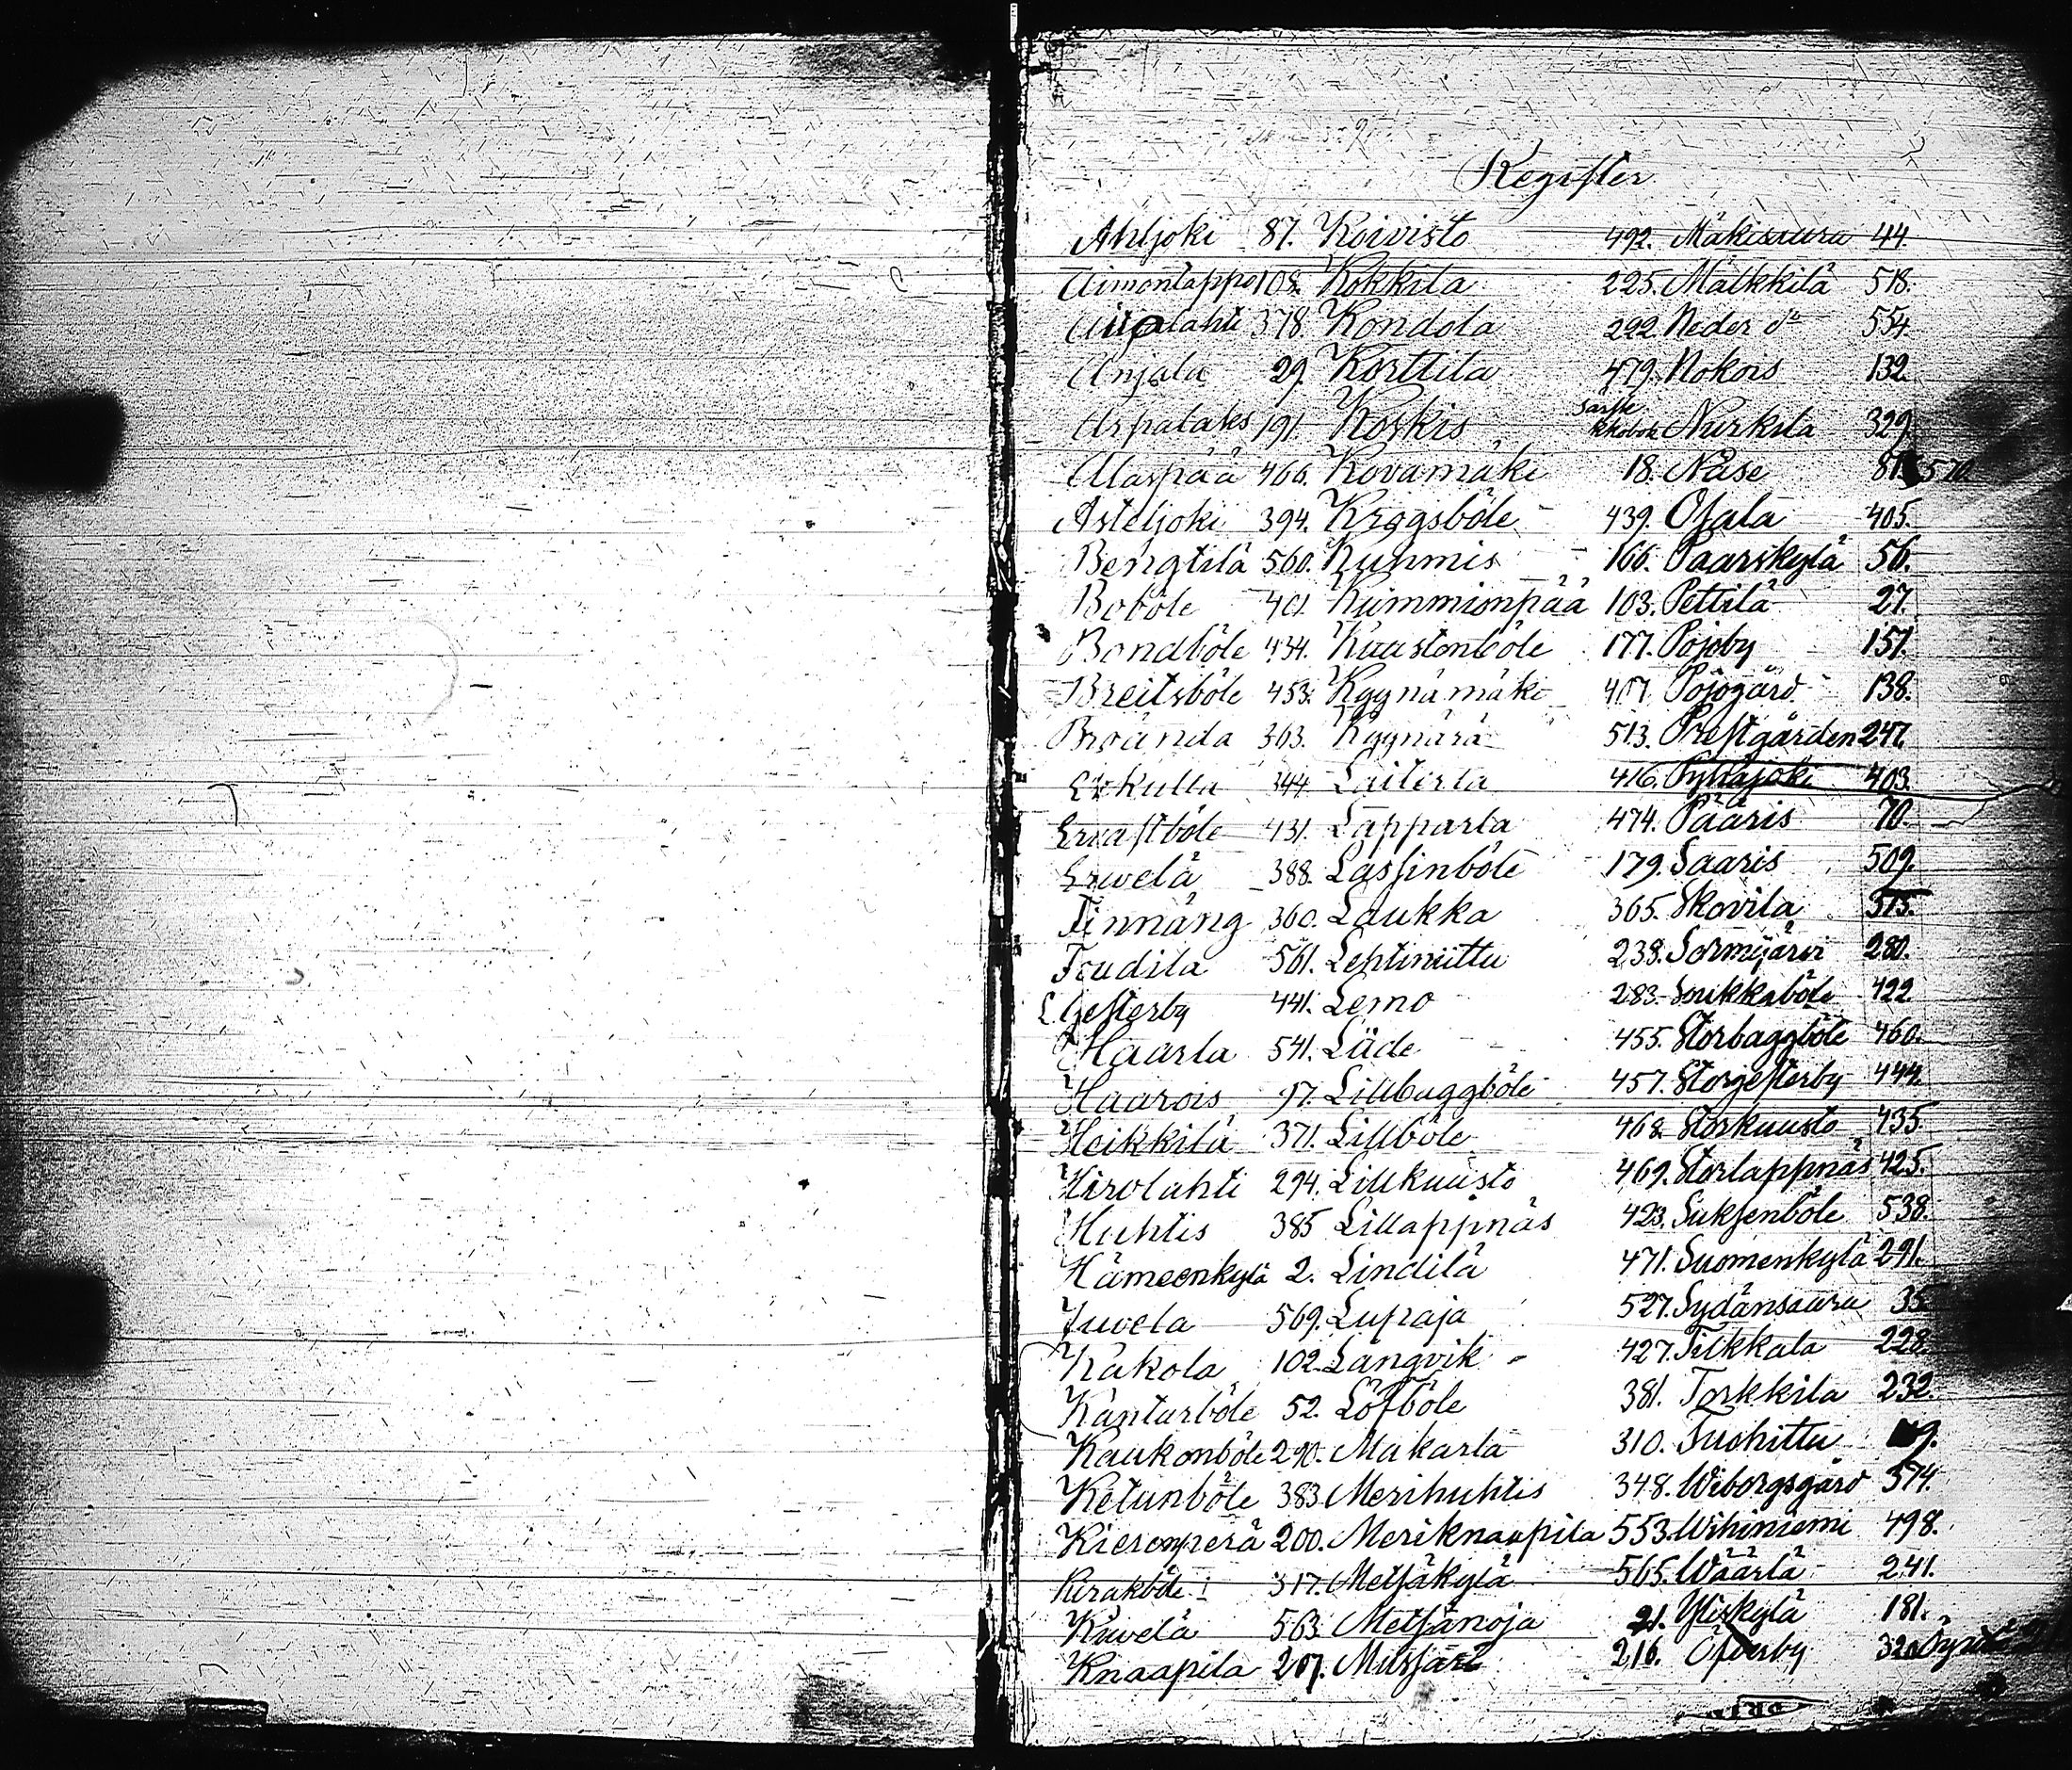 Register
Ahljoki 87. Koivisto 492. Mäkisaura 44.
Aimontappo 108. Kokkila 225. Mälkkilä 518.
378. Kondola 222. Neder d:o 554.
Anjala 29. Korttila 479. Nokois 132.
Arpalaks 191. Koskis särsk. k.bok Nurkila 329.
Alaspää 466. Kovamäki 18. Näse
Asteljoki 394. Kräggsböle 439. Ojala 405.
Bengtilä 560. Kuhmis 166. Paarskylä 56.
Boböle 401. Kummionpää 103. Pettilä 27.
Bondböle 434. Kuustonböle 177. Pojoby 157.
Breitsböle 453. Kyynämäki 407. Pojogård 138.
Broända 363. Kyynärä 513. Prestgården 247.
Erkulla 344. Laiterla 416. Pyhäjoki 403.
Ervastböle 431. Lapparla 474. Pääris 70.
Erwelä 388. Lassinböle 179. Saaris 509.
Finnäng 360. Laukka 365. Skovila 515.
Frudila 561. Lehtiniittu 238. Sormijärvi 280.
L. Gesterby 441. Lemo 283. Soukkaböle 422.
Haarla 541. Liide 455. Storbaggböle 460.
Haarois 97. Lillbaggböle 457. Storgesterby 444.
Heikkilä 371. Lillböle 468. Storkuusto 435.
Hirvlahti 294. Lillkuusto 469. Storlappnäs 425.
Huhtis 385 Lillappnäs 423. Suksenböle 538.
Hämeenkylä 2. Lindilä 471. Suomenkylä 291.
Juvela 569. Lupaja 527. Sydänsaura 35.
Kakola 102. Långvik 427. Tiikkala 228.
Kanturböle 52. Löfböle 381. Torkkila 232.
Kaukonböle 290. Makarla 310. Tuohittu
Ketunböle 383. Merihuhtis 348. Wiborgsgård 574.
Kiesonperä 200. Meriknaapila 553. Wihiniemi 498.
Kiraböle 317. Metsäkylä 565. Wäärlä 241.
Kiwelä 563. Metsänoja 21. Yliskylä 181.
Knaapila 207. Mussaari 216. Öfverby 320